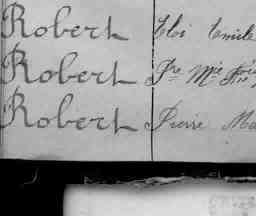 Robert Eloi Emile
Robert Pre Mie
Robert Pierre Ma